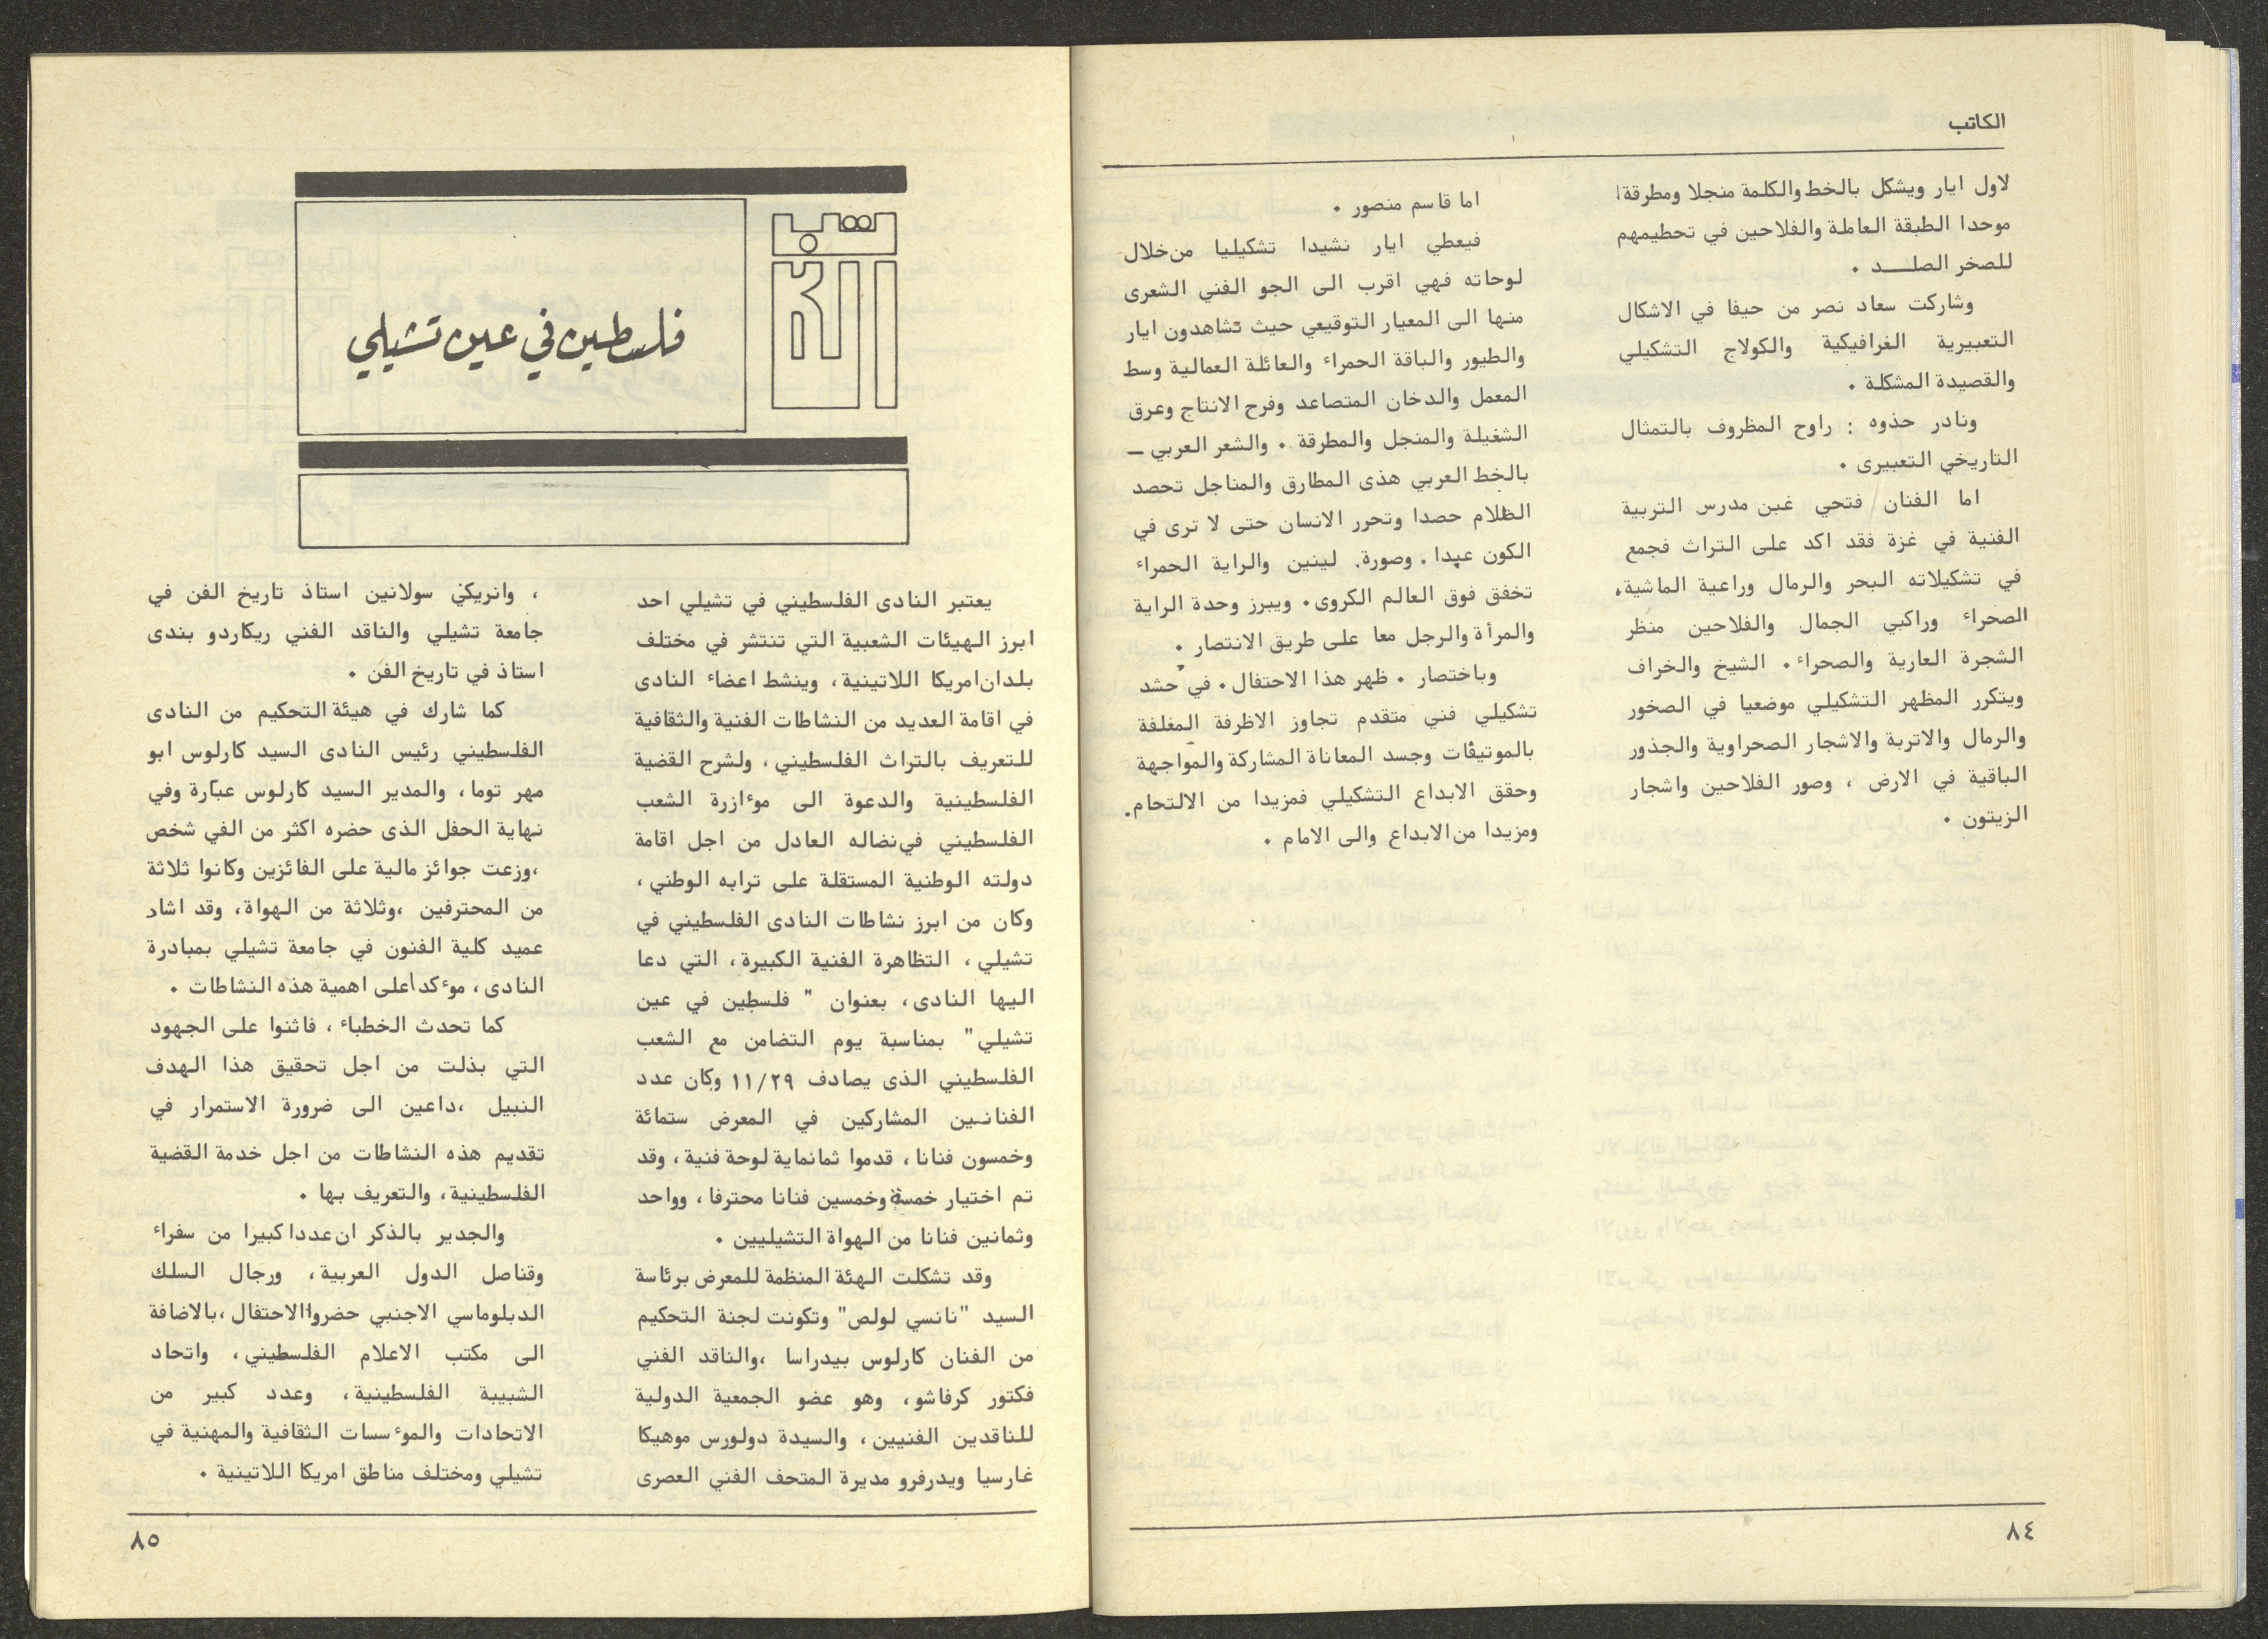 الكاتب
لاول ايار ويشكل بالخط والكلمة منجلا ومطرقة
موحدا الطبقة العاملة والفلاحين في تحطيمهم
للصخر الصلـــد ٠
وشاركت سعاد نصر من حيفا في الاشكال
التعبيرية الغرافيكية والكولاج التشكيلي
والقصيدة المشكلة ٠
ونادر حذوه : راوح المظروف بالتمثال
التاريخي التعبيرى ٠
اما الفنان / فتحي غبن مدرس التربية
الفنية في غزة فقد اكد على التراث فجمع
في تشكيلاته البحر والرمال وراعية الماشية٠
الصحراء وراكبي الجمال والفلاحين منظر
الشجرة العارية والصحراء ٠ الشيخ والخراف
ويتكرر المظهر التشكيلي موضعيا في الصخور
والرمال والاتربة والاشجار الصحراوية والجذور
الباقية في الارض ، وصور الفلاحين واشجار
الزيتون ٠
اما قاسم منصور ٠
فيعطي ايار نشيدا تشكيليا من خلال
لوحاته فهي اقرب الى الجو الفني الشعرى
منها الى المعيار التوقيعي حيث تشاهدون ايار
والطيور والباقة الحمراء والعائلة العمالية وسط
المعمل والدخان المتصاعد وفرح الانتاج وعرق
الشغيلة والمنجل والمطرقة ٠ والشعر العربي –
بالخط العربي هذى المطارق والمناجل تحصد
الظلام حصدا وتحرر الانسان حتى لا ترى في
الكون عبدا ٠ وصورة. لينين والراية الحمراء
تخفق فوق العالم الكروى٠ ويبرز وحدة الراية
والمرأة والرجل معا على طريق الانتصار ٠
وباختصار ٠ ظهر هذا الاحتفال ٠ في حشد
تشكيلي فني متقدم تجاوز الاظرفة المغلفة
بالموتيفات وجسد المعاناة المشاركة والمواجهة
وحقق الابداع التشكيلي فمزيدا من الالتحام.
ومزيدا من الابداع والى الامام ٠
٨٤
فلسطين في عين تشيلي
يعتبر النادى الفلسطيني في تشيلي احد
ابرز الهيئات الشعبية التي تنتشر في مختلف
بلدان امريكا اللاتينية، وينشط اعضاء النادى
في اقامة العديد من النشاطات الفنية والثقافية
للتعريف بالتراث الفلسطيني ، ولشرح القضية
الفلسطينية والدعوة الى موءازرة الشعب
الفلسطيني في نضاله العادل من اجل اقامة
دولته الوطنية المستقلة على ترابه الوطني ،
وكان من ابرز نشاطات النادى الفلسطيني في
تشيلي ، التظاهرة الفنية الكبيرة، التي دعا
اليها النادى، بعنوان " فلسطين في عين
تشيلي" بمناسبة يوم التضامن مع الشعب
الفلسطيني الذى يصادف ١١/٢٩ وكان عدد
الفنانين المشاركين في المعرض ستمائة
وخمسون فنانا ، قدموا ثمانماية لوحة فنية ، وقد
تم اختيار خمسة وخمسين فنانا محترفا ، وواحد
وثمانين فنانا من الهواة التشيليين ٠
وقد تشكلت الهئة المنظمة للمعرض برئاسة
السيد "نانسي لولص" وتكونت لجنة التحكيم
من الفنان كارلوس بيدراسا ،والناقد الفني
فكتور كرفاشو، وهو عضو الجمعية الدولية
للناقدين الفنيين ، والسيدة دولورس موهيكا
غارسيا ويدرفرو مديرة المتحف الفني العصرى
، وانريكي سولانين استاذ تاريخ الفن في
جامعة تشيلي والناقد الفني ريكاردو بندى
استاذ في تاريخ الفن ٠
كما شارك في هيئة التحكيم من النادى
الفلسطيني رئيس النادى السيد كارلوس ابو
مهر توما ، والمدير السيد كارلوس عبارة وفي
نهاية الحفل الذى حضره اكثر من الفي شخص
،وزعت جوائز مالية على الفائزين وكانوا ثلاثة
من المحترفين ،وثلاثة من الهواة، وقد اشار
عميد كلية الفنون في جامعة تشيلي بمبادرة
النادى ، موءكدا على اهمية هذه النشاطات ٠
كما تحدث الخطباء ، فاثنوا على الجهود
التي بذلت من اجل تحقيق هذا الهدف
النبيل ،داعين الى ضرورة الاستمرار في
تقديم هذه النشاطات من اجل خدمة القضية
الفلسطينية، والتعريف بها ٠
والجدير بالذكر ان عددا كبيرا من سفراء
وقناصل الدول العربية، ورجال السلك
الدبلوماسي الاجنبي حضروا الاحتفال ،بالاضافة
الى مكتب الاعلام الفلسطيني، واتحاد
الشبيبة الفلسطينية، وعدد كبير من
الاتحادات والموءسسات الثقافية والمهنية في
تشيلي ومختلف مناطق امريكا اللاتينية ٠
٨٥